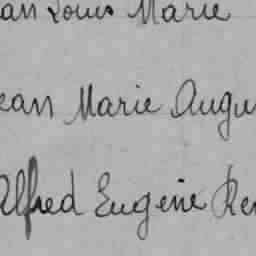 an Louis Marie
ean Marie Augu
Alfred Eugène Ren